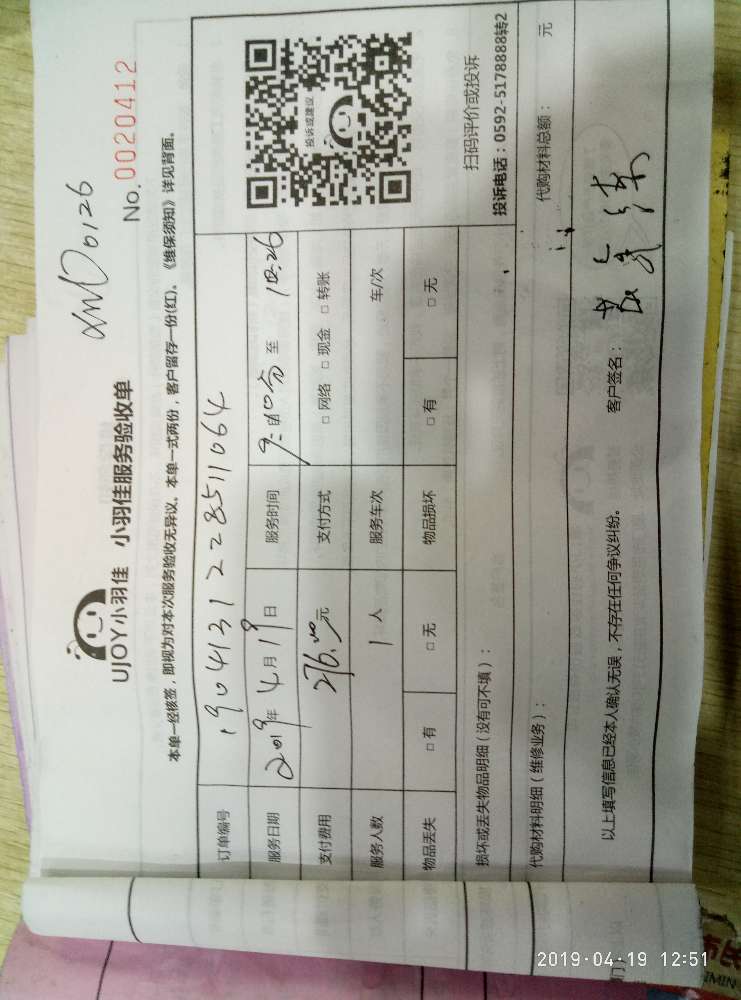 XMD0126
No. 0020412
UJOY小羽佳 小羽佳服务验收单
本单一经核签，即视为对本次服务验收无异议。本单一式两份，客户留存一份(红)。《维保须知》详见背面。
订单编号 190413122851 1064
服务日期 2019年 4月 19日 服务时间 至
支付费用 276.00元 支付方式 □ 网络 □ 现金 □ 转账
服务人数 1 人 服务车次 车/次
物品丢失 □ 有 □ 无 物品损坏 □ 有 □ 无
投诉或建议
扫码评价或投诉
投诉电话：0592-5178888转2
损坏或丢失物品明细（没有可不填）：
代购材料明细（维修业务）： 代购材料总额： 元
以上填写信息已经本人确认无误，不存在任何争议纠纷。 客户签名：
2019-04-19 12:51